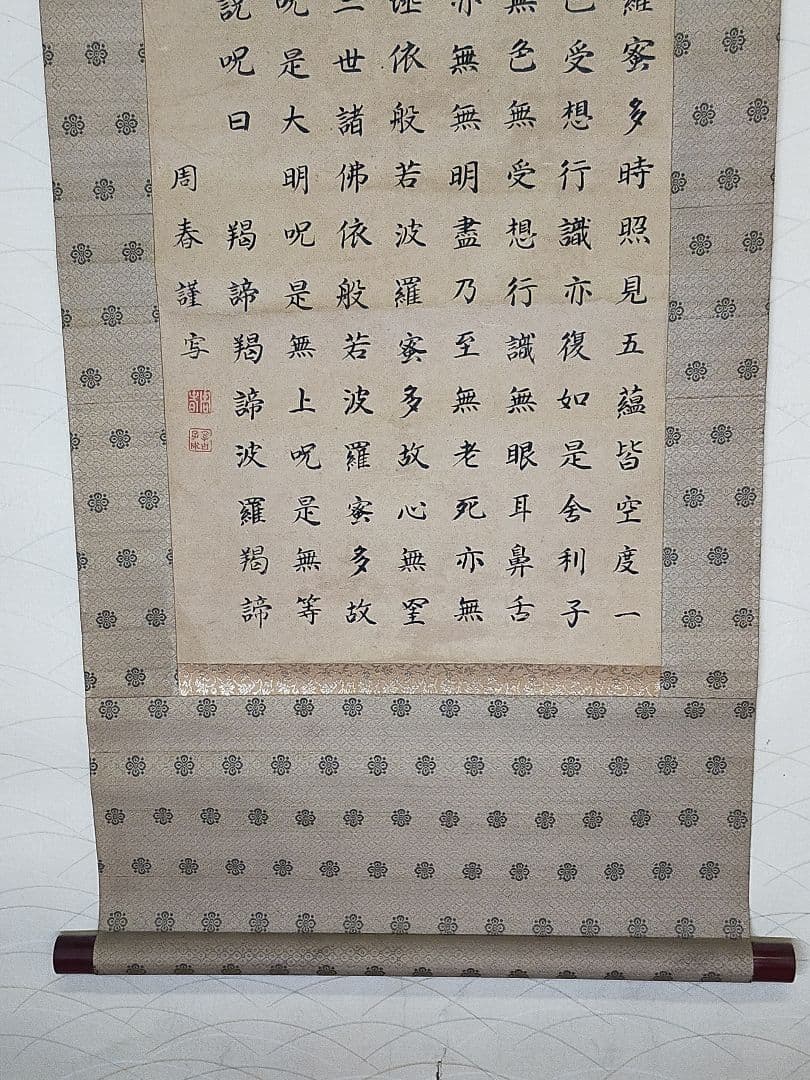 羅蜜多時照見五蘊皆空度一
受想行識亦復如是舍利子
無色無受想行識無眼耳鼻舌
亦無無明盡乃至無老死亦無
依般若波羅蜜多故心無罣
三世諸佛依般若波羅蜜多故
呪是大明呪是無上呪是無等
説呪曰 羯諦羯諦波羅羯諦
周春謹寫